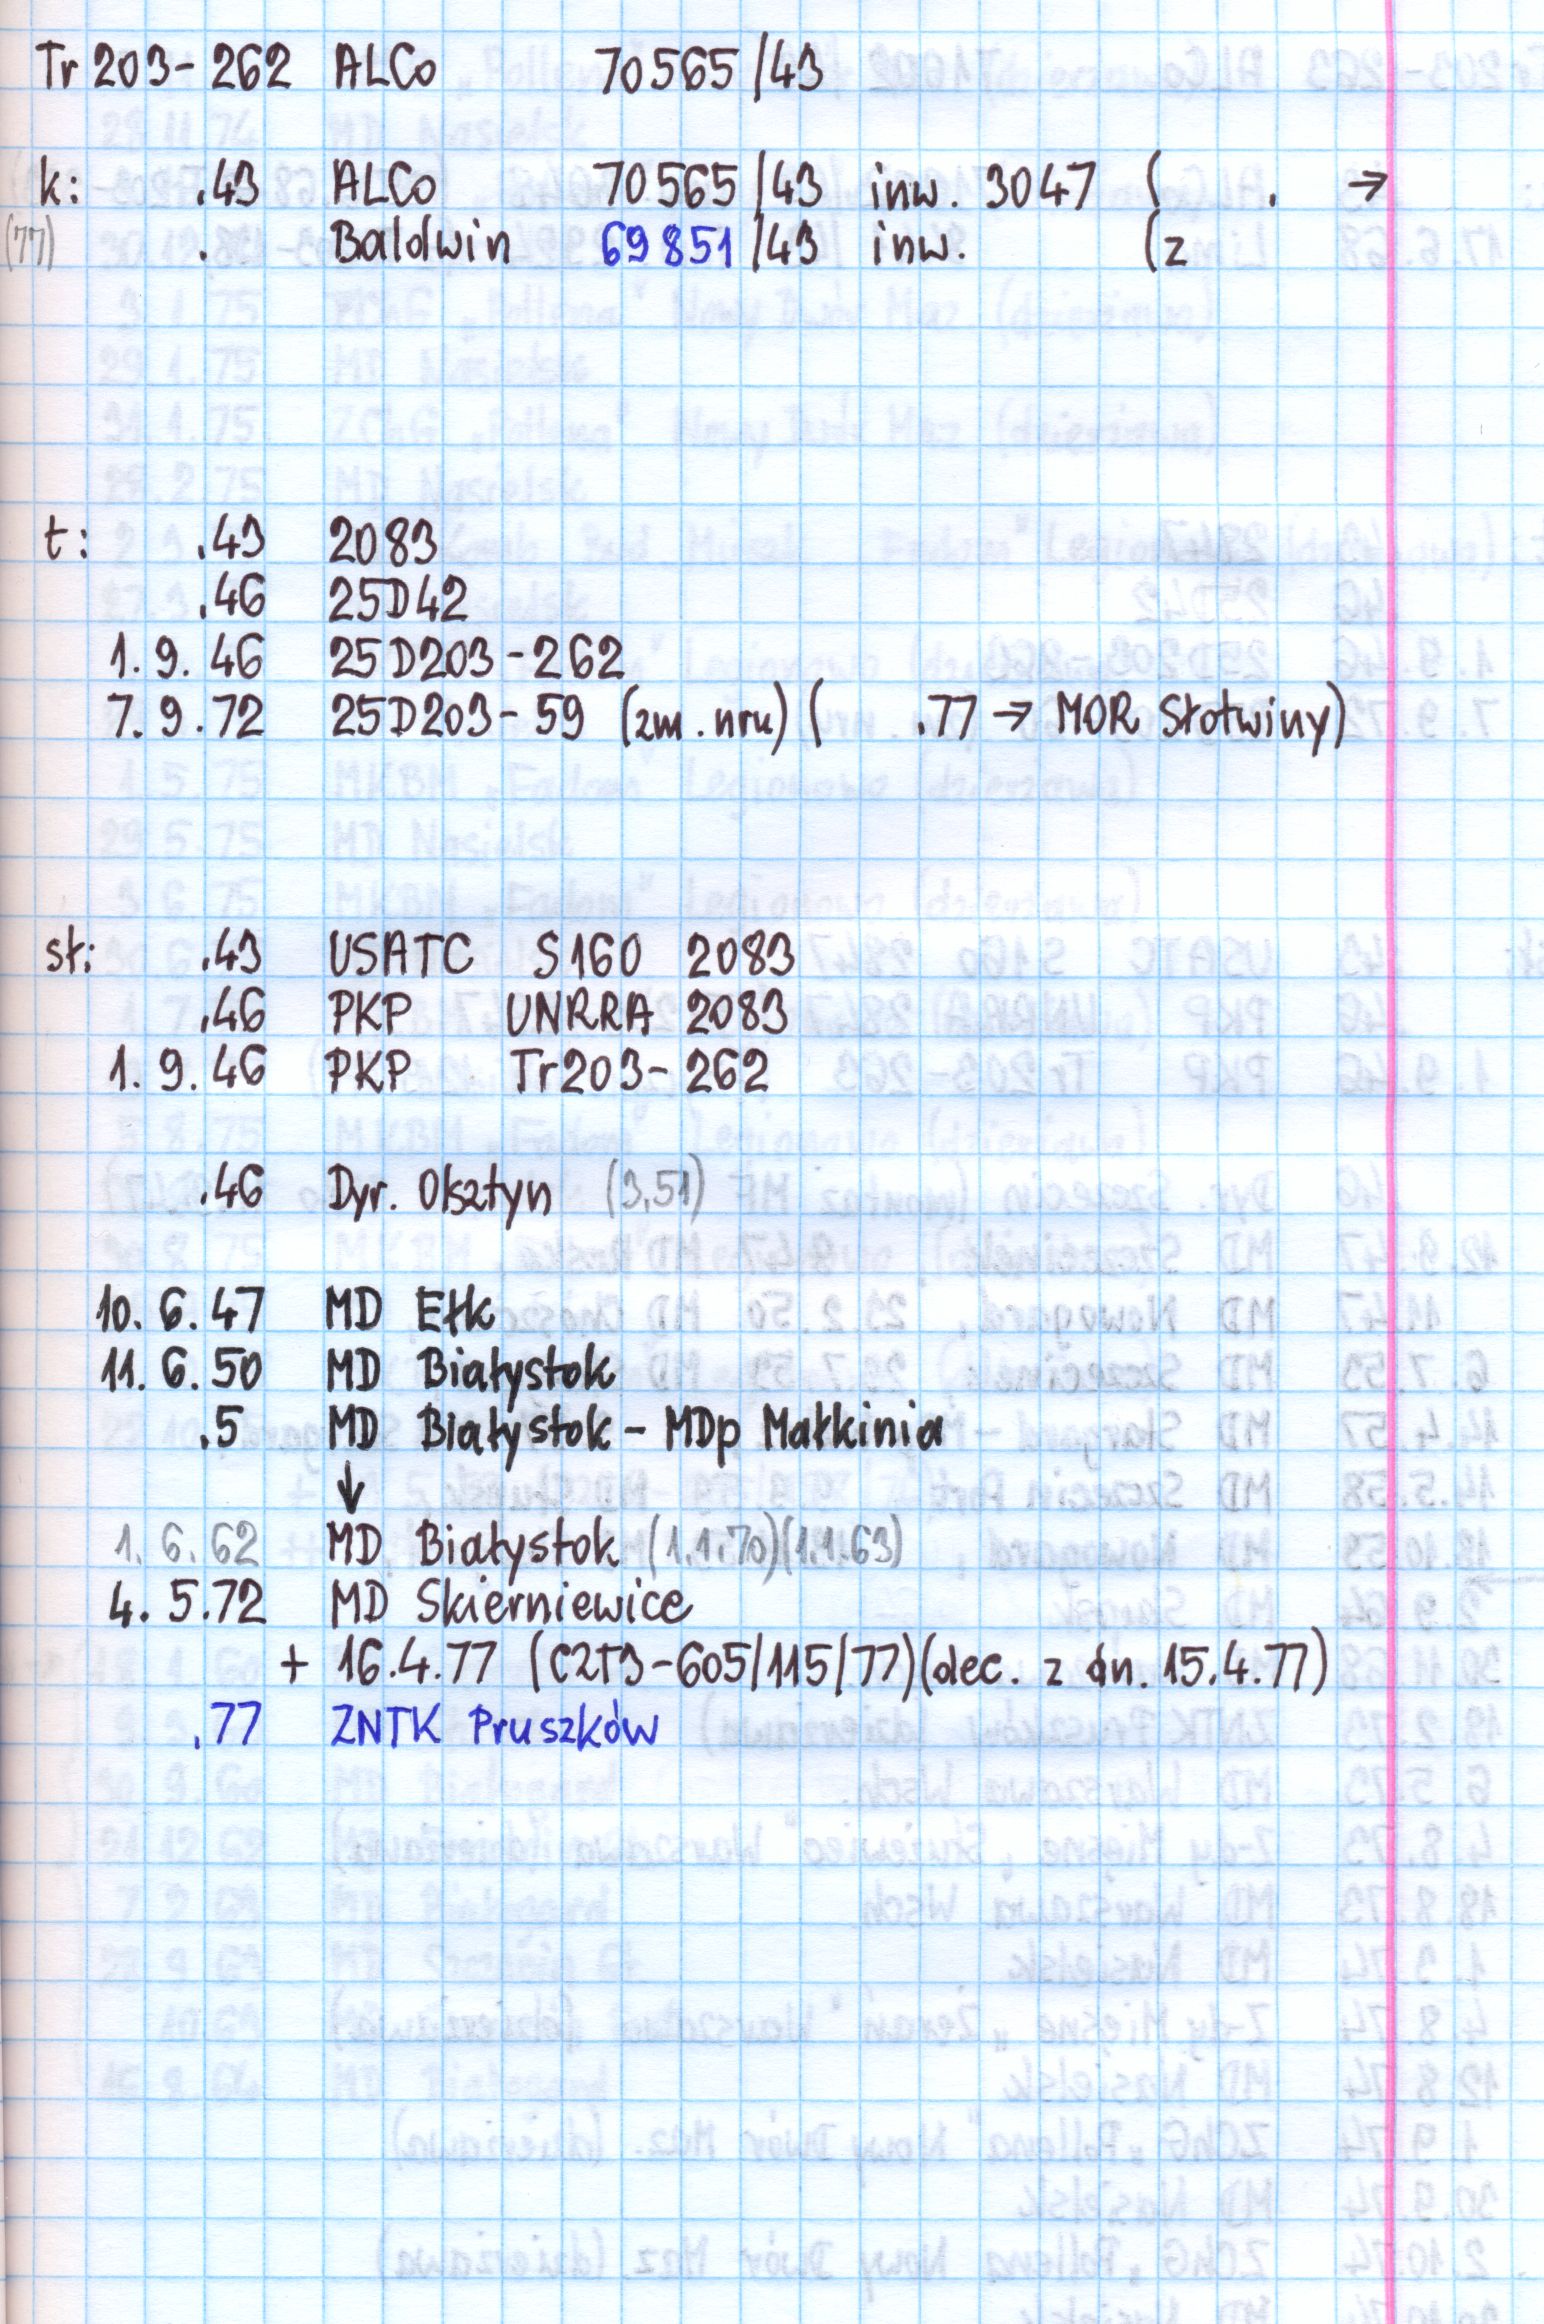 Tr 203-262 ALCo 70565/43
k: .43 ALCo 70565/43 inw. 3047 ( . →
(77) . Baldwin 69851/43 inw. (z
t: .43 2083
.46 25D42
1.9.46 25D203-262
7.9.72 25D203-59 (zm. nru) ( .77 → MOR Słotwiny)
sł: .43 USATC S160 2083
.46 PKP UNRRA 2083
1.9.46 PKP Tr203-262
.46 Dyr. Olsztyn (3,51)
10.6.47 MD Ełk
11.6.50 MD Białystok
.5 MD Białystok - MDp Małkinia
↓
1.6.62 MD Białystok (1.1.70)(1.1.63)
4.5.72 MD Skierniewice
+ 16.4.77 (C2T3-605/115/77)(dec. z dn. 15.4.77)
.77 ZNTK Pruszków